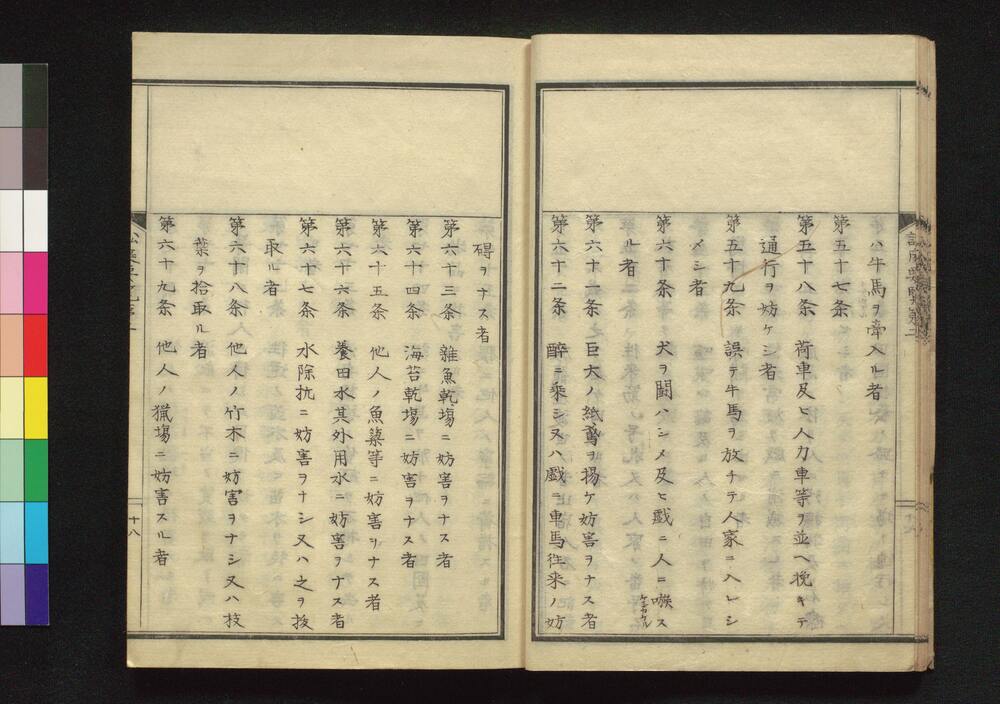 ハ牛馬ヲ牽入ル者
第五十七条
第五十八条 荷車及ヒ人力車等ヲ並ヘ挽キテ
通行ヲ妨ケシ者
第五十九条 誤テ牛馬ヲ放チテ人家ニ入レシ
メシ者
第六十条 犬ヲ闘ハシメ及ヒ戯ニ人ニ嗾ス
ケシカケル
ル者
第六十一条 巨大ノ紙鳶ヲ揚ケ妨害ヲナス者
第六十二条 酔ニ乗シ又ハ戯ニ車馬往来ノ妨
碍ヲナス者
第六十三条 雑魚乾場ニ妨害ヲナス者
第六十四条 海苔乾場ニ妨害ヲナス者
第六十五条 他人ノ魚簗等ニ妨害ヲナス者
第六十六条 養田水其外用水ニ妨害ヲナス者
第六十七条 水除杭ニ妨害ヲナシ又ハ之ヲ抜
取ル者
第六十八条 他人ノ竹木ニ妨害ヲナシ又ハ枝
葉ヲ拾取ル者
第六十九条 他人ノ猟場ニ妨害スル者
十八